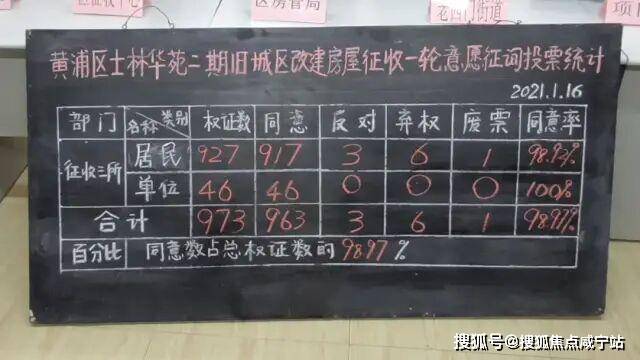 区房管局
老西门街道
黄浦区士林华苑二期旧城区改建房屋征收一轮意愿征询投票统计
2021.1.16
部门 名称 类别 权证数 同意 反对 弃权 废票 同意率
征收三所 居民 927 917 3 6 1 98.92%
单位 46 46 0 0 0 100%
合计 973 963 3 6 1 98.97%
百分比 同意数占总权证数的98.97%
搜狐号@搜狐焦点咸宁站